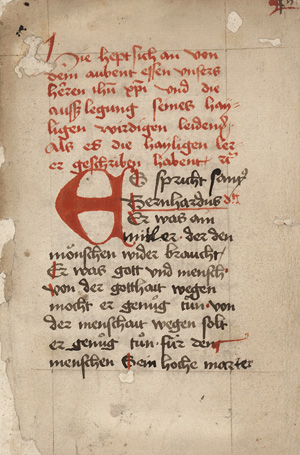 Hie hept sich an von
dem aubent essen unsers
herren ihu xpi und die
auss legung seines hay-
ligen wirdigen leidens
Als es die hayligen ler
er geschriben habent
Es spricht sanct
Bernhardus
Er was ain
mitler der den
mönschen wider braucht
Er was gott vnd mensch
von der gotthait wegen
mocht er genůg tůn von
der menschait wegen solt
er genůg tůn für den
menschen Sein hoche marter